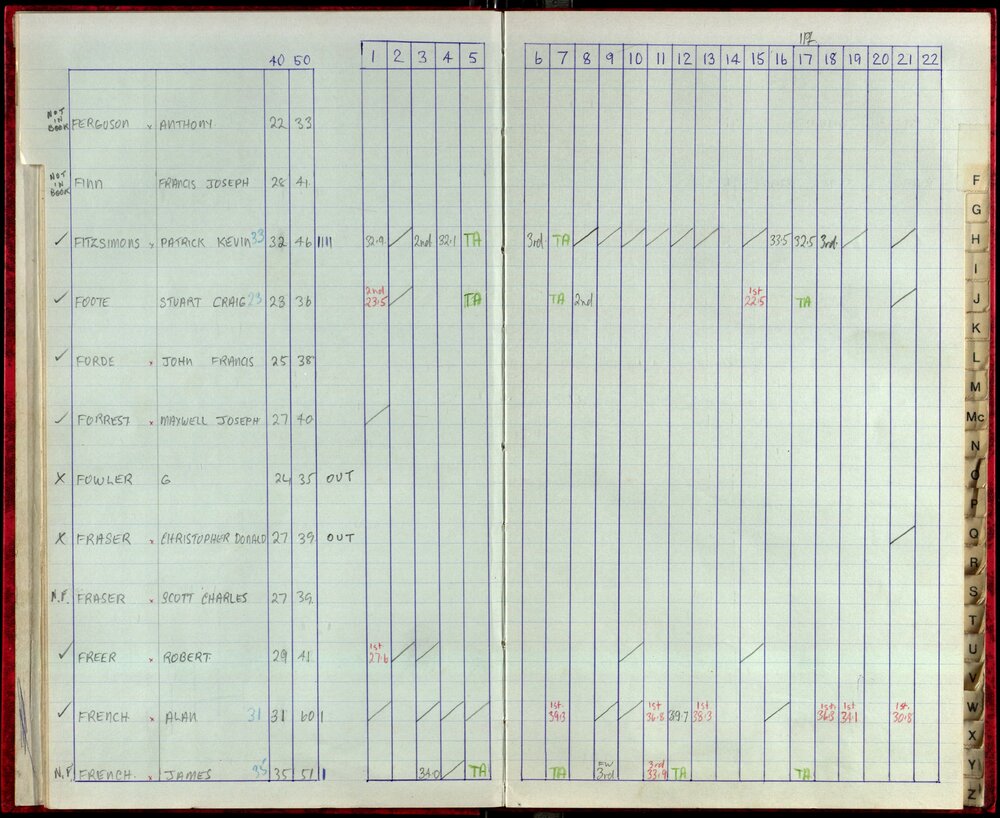 117
40 50 1 2 3 4 5 6 7 8 9 10 11 12 13 14 15 16 17 18 19 20 21 22
NOT IN BOOK FERGUSON x ANTHONY 22 33
NOT IN BOOK FINN FRANCIS JOSEPH 28 41
✓ FITZSIMONS x PATRICK KEVIN 33 32 46 1111 32.9 / 2nd 32.1 TA 3rd TA / / / / / / / 33.5 32.5 3rd / /
✓ FOOTE STUART CRAIG 23 23 36 2nd 23.5 / TA TA 2nd 1st 22.5 TA /
✓ FORDE x JOHN FRANCIS 25 38
✓ FORREST x MAYWELL JOSEPH 27 40 /
X FOWLER G 24 35 OUT
X FRASER x CHRISTOPHER DONALD 27 39 OUT /
N.F. FRASER x SCOTT CHARLES 27 39
✓ FREER x ROBERT 29 41 1st 27.6 / / / /
✓ FRENCH x ALAN 31 31 60 1 / / / / 1st 39.3 / / 1st 36.8 39.7 1st 38.3 / 1st 36.3 1st 34.1 1st 30.8
N.F. FRENCH x JAMES 35 35 51 1 34.0 / TA TA 3rd 3rd 33.9 TA TA
F
G
H
I
J
K
L
M
Mc
N
O
P
Q
R
S
T
U
V
W
X
Y
Z